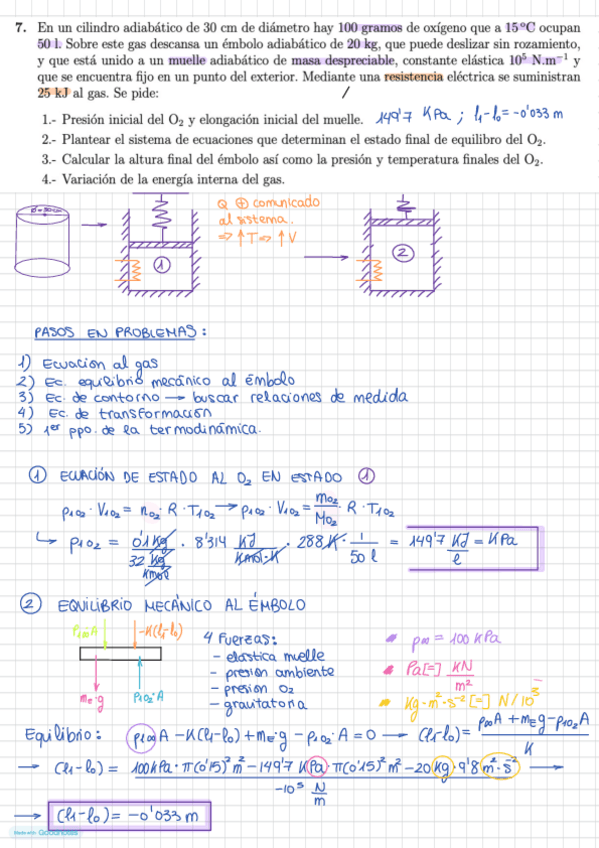 7. En un cilindro adiabático de 30 cm de diámetro hay 100 gramos de oxígeno que a 15 ºC ocupan
50 l. Sobre este gas descansa un émbolo adiabático de 20 kg, que puede deslizar sin rozamiento,
y que está unido a un muelle adiabático de masa despreciable, constante elástica 10⁵ N.m⁻¹ y
que se encuentra fijo en un punto del exterior. Mediante una resistencia eléctrica se suministran
25 kJ al gas. Se pide:
1.- Presión inicial del O₂ y elongación inicial del muelle. 149'7 KPa ; l₁-l₀=-0'033 m
2.- Plantear el sistema de ecuaciones que determinan el estado final de equilibro del O₂.
3.- Calcular la altura final del émbolo así como la presión y temperatura finales del O₂.
4.- Variación de la energía interna del gas.
Q ⊕ comunicado
al sistema.
⇒ ↑T ⇒ ↑V
1
2
PASOS EN PROBLEMAS:
1) Ecuacion al gas
2) Ec. equilibrio mecánico al émbolo
3) Ec. de contorno → buscar relaciones de medida
4) Ec. de transformación
5) 1er ppo. de la termodinámica.
1 ECUACIÓN DE ESTADO AL O₂ EN ESTADO 1
p₁O₂ · V₁O₂ = nO₂ · R · T₁O₂ → p₁O₂ · V₁O₂ = mO₂/MO₂ · R · T₁O₂
↳ p₁O₂ = 0'1 Kg / 32 Kg/Kmol · 8'314 KJ/Kmol·K · 288 K · 1/50 l = 149'7 KJ/l = KPa
2 EQUILIBRIO MECÁNICO AL ÉMBOLO
P₁∞A -K(l₁-l₀)
mE·g P₁O₂·A
4 Fuerzas:
- elástica muelle
- presión ambiente
- presión O₂
- gravitatoria
p∞ = 100 KPa
Pa[=] KN/m²
Kg·m·s⁻² [=] N/10³
Equilibrio: p₁∞A - K(l₁-l₀) + mE·g - p₁O₂·A = 0 → (l₁-l₀) = p∞A + mE g - p₁O₂A / K
→ (l₁-l₀) = 100 KPa · π(0'15)² m² - 149'7 KPa · π(0'15)² m² - 20 Kg · 9'8 m·s⁻² / -10⁵ N/m →
→ (l₁-l₀) = -0'033 m
Made with Goodnotes